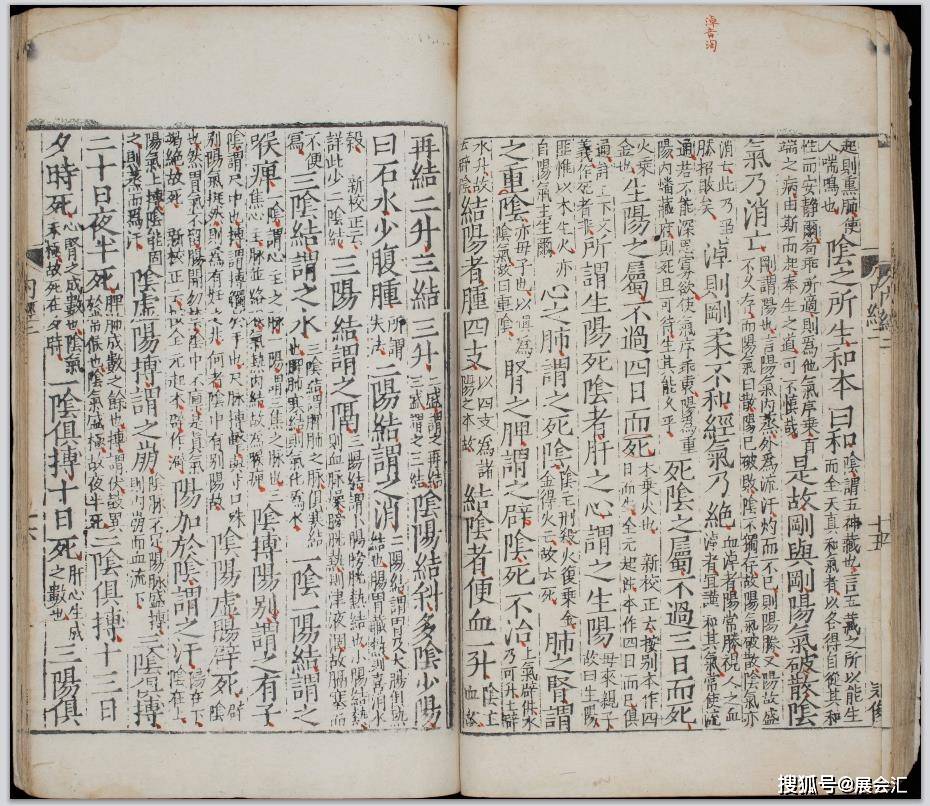 淖音淘
起則熏肺使人喘鳴也陰之所生和本曰和陰謂五神藏也言五藏之所以能生而全天真和氣者以各得自從其和
性而安靜爾苟乖所適則為他氣所乘百端之病由斯而起奉生之道可不慎哉是故剛與剛陽氣破散陰
氣乃消亡剛謂陽也言陽氣內蒸外為流汗灼而不已則陽勝又陽故盛不久存而陽氣自散陽已破敗陰不獨行故陽氣破散陰氣亦
消亡此乃勝招敗矣淖則剛柔不和經氣乃絕血淖者陽常勝視人之血淖者宜謹和其氣常使流
通若不能深思寡欲使氣序乖衷陽為重陽內燔藏府則死且可待生其能久乎死陰之屬不過三日而死
火乘金也生陽之屬不過四日而死木乘火也新校正云按別本作四日而生全元起注本作四日而已俱
通詳上下文義作死者非所謂生陽死陰者肝之心謂之生陽母來親子故曰生陽
匪惟以木生火亦自陽氣主生爾心之肺謂之死陰陰主刑殺火復乘金金得火亡故云死肺之腎謂
之重陰亦母子也以俱為陰氣故曰重陰腎之脾謂之辟陰死不治土氣辟併水乃可升土辟
水升故云辟陰結陽者腫四支以四支為諸陽之本故結陰者便血一升陰主血故
內經二
十五
再結二升三結三升二盛謂之再結三盛謂之三結陰陽結斜多陰少陽
曰石水少腹腫所謂失法二陽結謂之消二陽結謂胃及大腸俱熱結也腸胃藏熱則喜消水
穀新校正云詳此少二陰結三陽結謂之隔三陽結謂小腸膀胱熱結也小腸結熱則血脈燥膀胱熱則津液涸故膈塞而
不便寫三陰結謂之水三陰結謂脾肺之脈俱寒結也脾肺寒結則氣化為水一陰一陽結謂之
喉痹一陰謂心主之脈一陽謂三焦之脈也三焦心主脈並絡喉氣熱內結故為喉痹陰搏陽別謂之有子
陰謂尺中也搏謂搏觸於手也尺脈搏擊與寸口殊別陽氣挺然則為有妊之兆何者陰中有別陽故陰陽虛腸辟死辟陰
也然胃氣不留腸開勿禁陰中不廩是真氣竭絕故死新校正云全元起本辟作澼陽加於陰謂之汗陽在下陰在上
陽氣上搏陰能固之則蒸而為汗陰虛陽搏謂之崩陰脈不足陽脈盛搏則內崩而血流下三陰俱搏
二十日夜半死脾肺成數之餘也搏謂伏鼓異於常候也陰氣盛極故夜半死二陰俱搏十三日
夕時死心腎之成數也陰氣未極故死在夕時一陰俱搏十日死肝心生成之數也三陽俱
搜狐号@展会汇